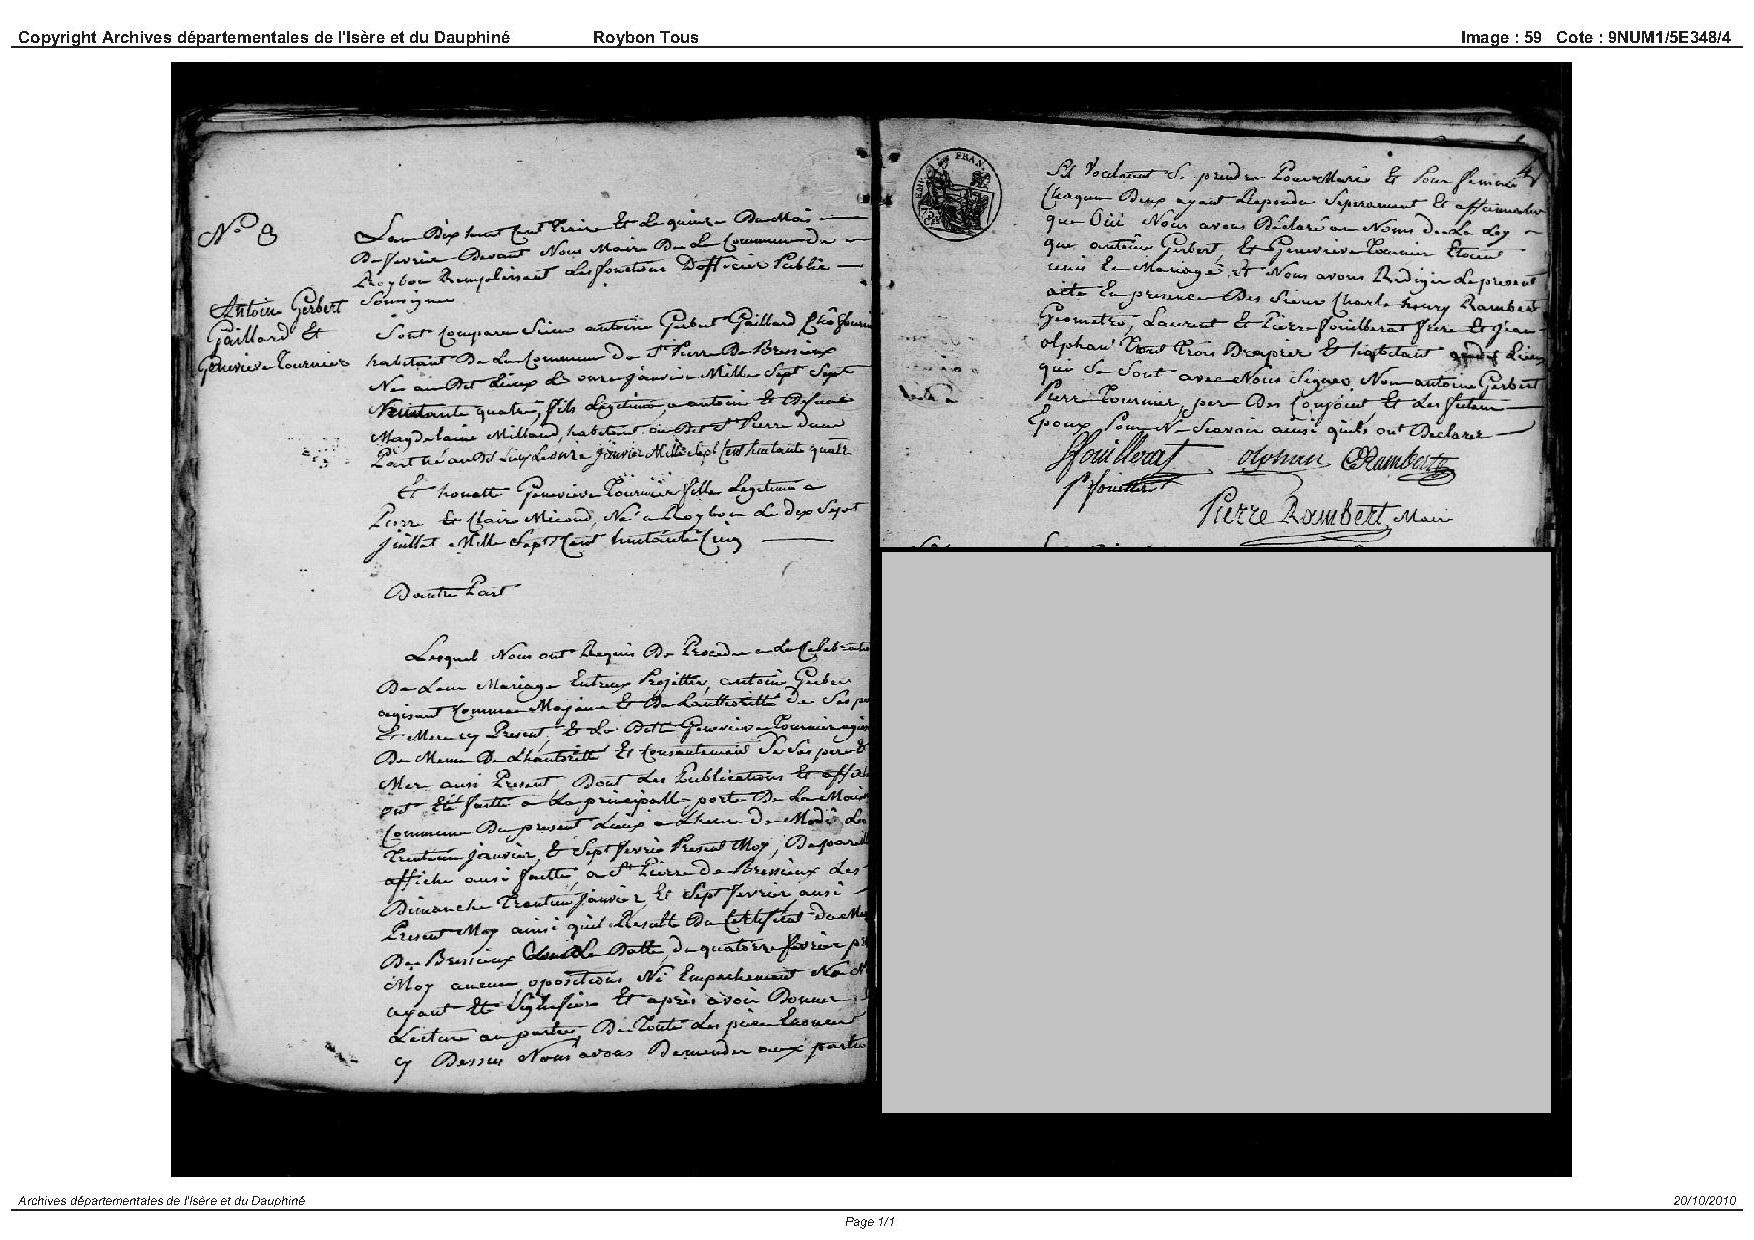 Copyright Archives départementales de l'Isère et du Dauphiné Roybon Tous Image : 59 Cote : 9NUM1/5E348/4
N° 8
Antoine Gerbert
Gaillard et
Genevieve Tournier
Lan Dix huit Cent Treize et le quinze Du Mois
De fevrier Devant Nous Maire De la Commune de
Roybon Remplissant Les fonctions Dofficier Public
Soussigner
Sont Comparu Sieur antoine Gerbert Gaillard
habitant De La Commune De St Pierre De Bressieux
Né au Dit Lieux Le onze Janvier Mille Sept Sept
quatre, fils Legitime, a antoine Et Defunte
Magdelaine Millaud, habitant au Dit St Pierre dune
Part né au Dit Lieux Le onze Janvier Mille Sept Cent huitante quatre
Et honette Genevieve Tournier fille Legitime a
Pierre Et Claire Micoud, Né a Roybon Le dix Sept
Juillet Mille Sept Cent huitante Cinq
Dautre Part
Lesquel Nous ont Requis De Proceder a La Celebration
De Leur Mariage Entreux Projetter, antoine Gerbert
agissant Comme Majeur Et De Lauthorité De Ses
Et Mere cy Present, Et La Ditte Genevieve Tournier
De Meme De Lhautorité Et Consentement De Ses pere Et
Mer ausi Present Dont Les Publications Et affiche
ont Eté faitte a La principalle porte De La Maison
Commune Du present Lieux a Lheure De Midi Les
Trentun Janvier, Et Sept fevrier Present Moy, De pareille
affiche ausi faitte a St Pierre De Bressieux Les
Dimanche Trentun Janvier, Et Sept fevrier ausi
Present Moy ainsi quil Resulte Du Certificat du
De Bressieux Datte, du quatorze fevrier
Moy aucune opositions Ni Empechement Ne
ayant Eté Signifier Et après avoir Donner
Lecture au parties, De Toute Les piece Enoncer
cy Dessus Nous avons Demender aux parties
Sil Voulaient Se prendre Pour Mari Et Pour femme
Chaqun Deux ayant Repondu Separement Et affirmative
que Oui Nous avons Declaré au Noms De La Loy
que antoine Gerbert, Et Genevieve Tournier Etoient
unis En Mariage, Et Nous avons Rediger Le present
acte En presence Des Sieur Charle henry Rambert
Geometre, Laurent Et Pierre fouillerat frere Et Jean
olphan Tous Trois Drapier Et habitant Lieux
qui Se Sont avec Nous Signer, Non antoine Gerbert
Pierre Tournier, pere Des Conjoint Et Les futeur
Epoux Pour Ne Scavoir ainsi quils ont Declarer
fouillerat olphan CRambert
Pierre Rambert Maire
Archives départementales de l'Isère et du Dauphiné 20/10/2010
Page 1/1